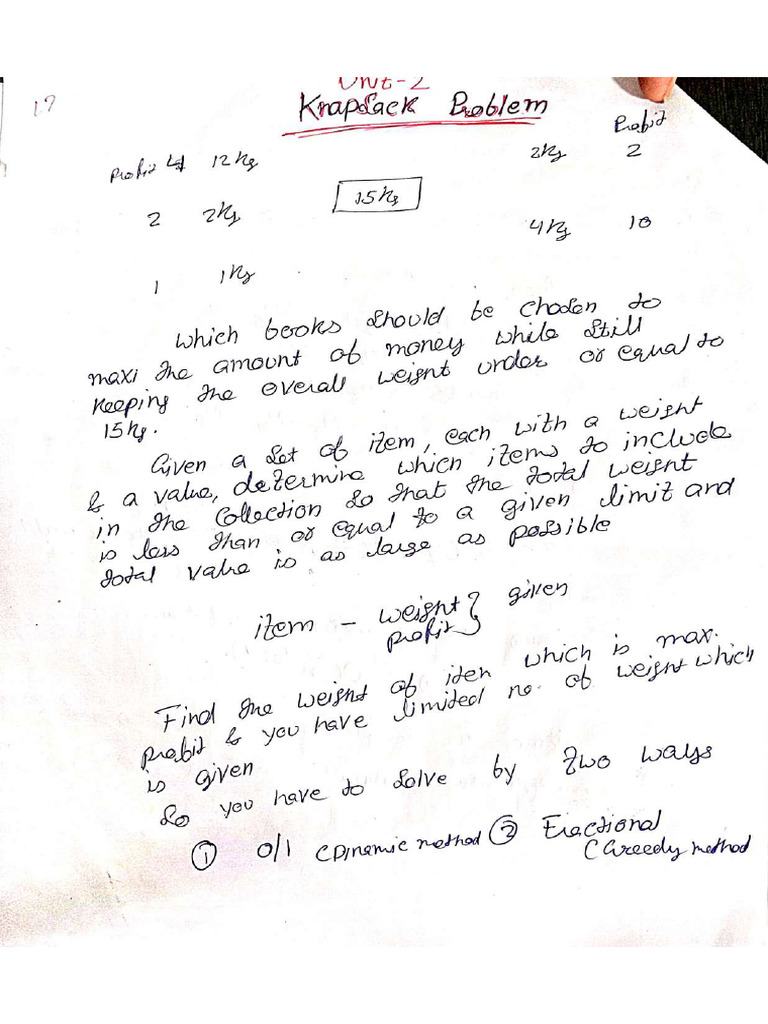 Unit-2
17
Knapsack Problem
Profit 4 12 Kg
2Kg Profit 2
2 2Kg
15Kg
4Kg 10
1 1Kg
which books should be chosen to
maxi the amount of money while still
keeping the overall weight under or equal to
15Kg.
Given a set of item, each with a weight
& a value, determine which items to include
in the collection so that the total weight
is less than or equal to a given limit and
total value is as large as possible
item - weight } given
profit
Find the weight of item which is max.
profit & you have limited no. of weight which
is given
So you have to solve by two ways
① 0/1 (Dinamic method ② Fractional
(Greedy method